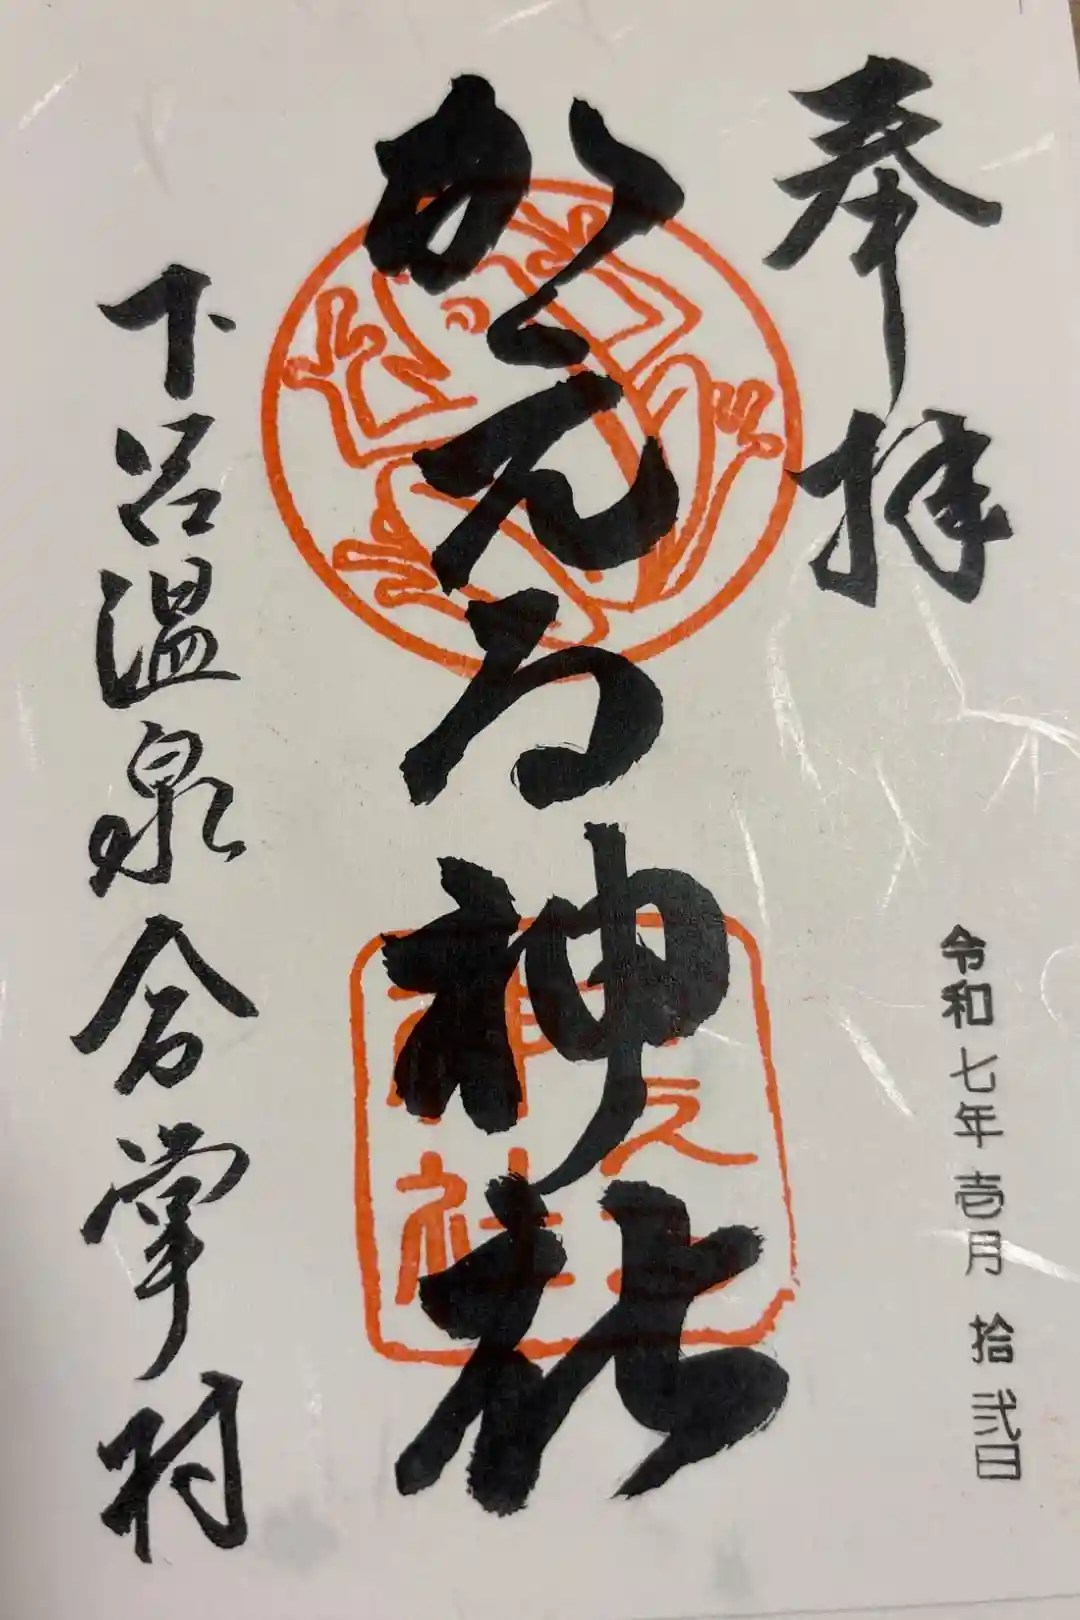 奉拝
令和七年壱月拾弐日
かえる神社
下呂温泉合掌村